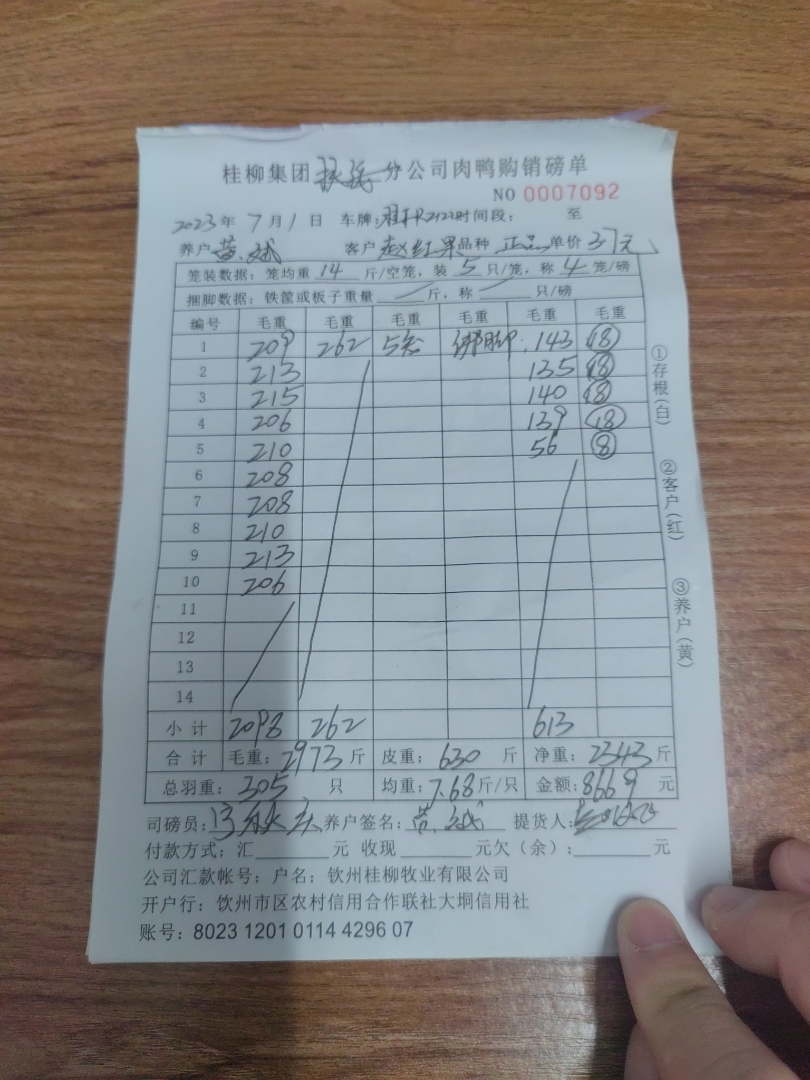 桂柳集团 分公司肉鸭购销磅单
NO 0007092
2023年 7月1日 车牌: 时间段: 至
养户 黄 斌 客户 赵红果 品种 正品 单价 3.7元
笼装数据: 笼均重 14 斤/空笼, 装 5 只/笼, 称 4 笼/磅
捆脚数据: 铁筐或板子重量 斤, 称 只/磅
编号 毛重 毛重 毛重 毛重 毛重 毛重
1 209 262 5笼 绑脚: 143 18
2 213 135 18
3 215 140 18
4 206 139 18
5 210 56 8
6 208
7 208
8 210
9 213
10 206
11
12
13
14
小计 2098 262 613
合计 毛重: 2973斤 皮重: 630 斤 净重: 2343斤
总羽重: 305 只 均重: 7.68斤/只 金额: 8669 元
司磅员: 养户签名: 黄 斌 提货人:
付款方式: 汇 元 收现 元欠(余): 元
公司汇款帐号: 户名: 钦州桂柳牧业有限公司
开户行: 饮州市区农村信用合作联社大垌信用社
账号: 8023 1201 0114 4296 07
①存根(白)
②客户(红)
③养户(黄)